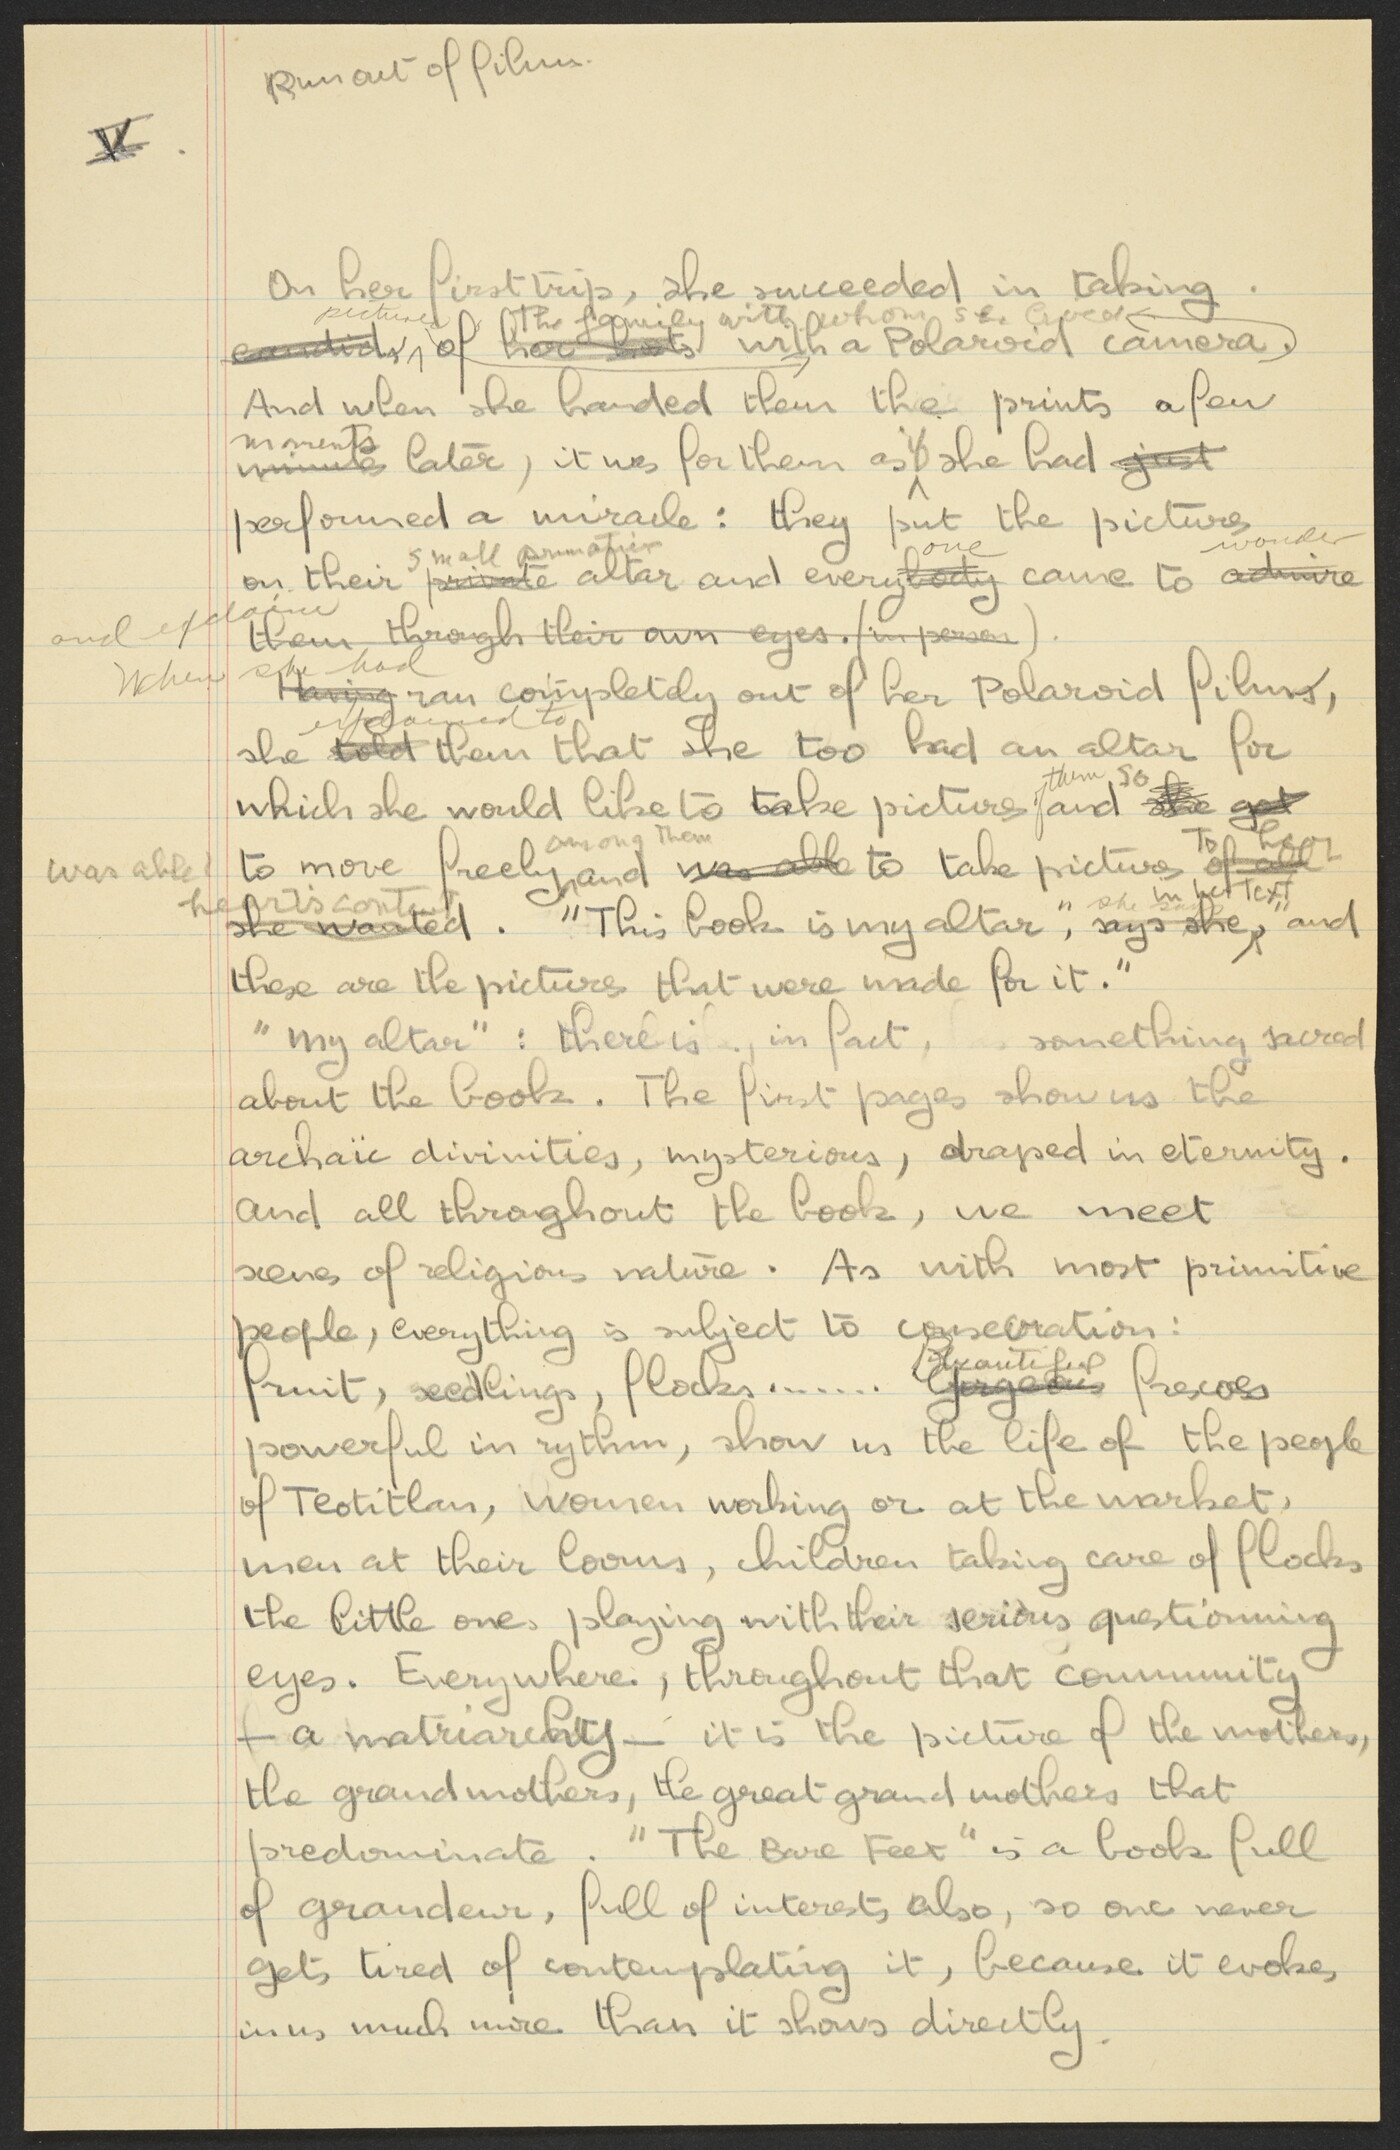 Run out of films.
V.
On her first trip, she succeeded in taking
pictures the family with whom she lived
candids, of her hosts with a Polaroid camera.
And when she handed them the prints a few
moments if
minutes later, it was for them as she had just
performed a miracle: they put the pictures
small primative one wonder
on their private altar and everybody came to admire
and explain
them through their own eyes. (in person).
When she had
Having ran completely out of her Polaroid films,
explained to
she told them that she too had an altar for
them so
which she would like to take pictures, and she got
among them To her
was able to move freely, and was able to take pictures of all
heart's content she says in her text
she wanted. "This book is my altar", says she, "and
these are the pictures that were made for it."
"My altar": there is, in fact, something sacred
about the book. The first pages show us the
archaïc divinities, mysterious, draped in eternity.
And all throghout the book, we meet
scenes of religious nature. As with most primitive
people, everything is subject to consecration:
Beautiful
fruit, seedlings, flocks....... Gorgeous frescoes
powerful in rythm, show us the life of the people
of Teotitlan, women working or at the market,
men at their looms, children taking care of flocks
the little ones playing with their serious questionning
eyes. Everywhere, throughout that community
– a matriarchy – it is the picture of the mothers,
the grandmothers, the great grand mothers that
predominate. "The Bare Feet" is a book full
of grandeur, full of interests also, so one never
gets tired of contemplating it, because it evokes
in us much more than it shows directly.